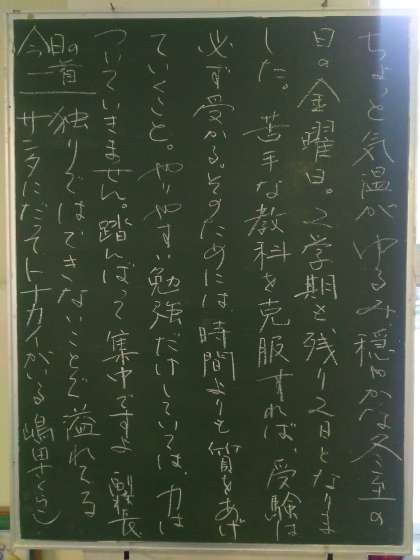 ちょっと気温がゆるみ穏やかな冬至の
日の金曜日。2学期も残り2日となりま
した。苦手な教科を克服すれば、受験は
必ず受かる。そのためには時間よりも質をあげ
ていくこと。やりやすい勉強だけしていては、力は
ついていきません。踏んばって集中ですよ
今日の一首
独りではできないことで溢れてる
サンタにだってトナカイがいる 嶋田さくらこ)